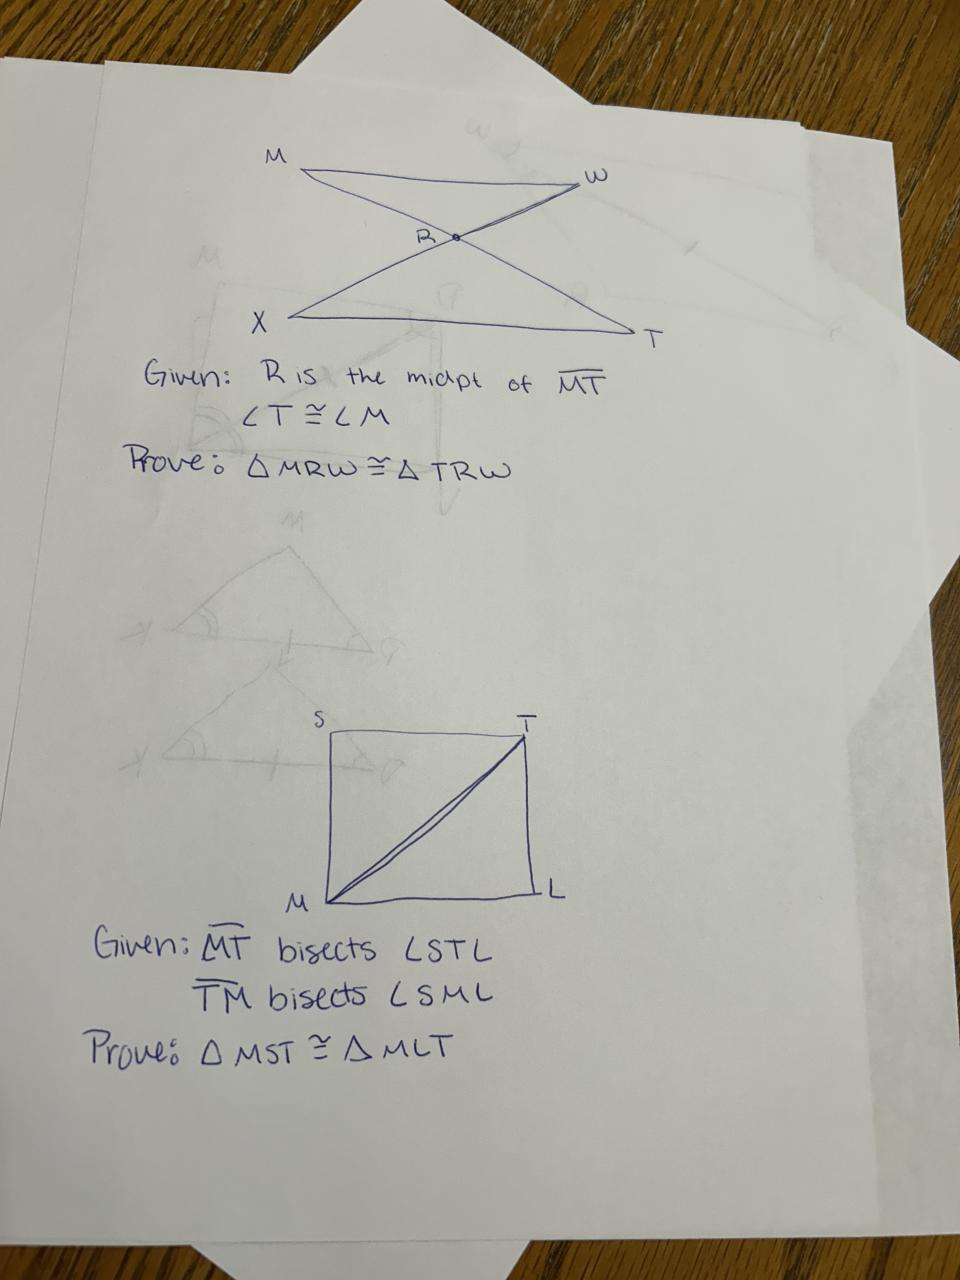 M
W
R
X
T
Given: R is the midpt of MT
∠T ≅ ∠M
Prove: △MRW ≅ △TRW
S
T
M
L
Given: MT bisects ∠STL
TM bisects ∠SML
Prove: △MST ≅ △MLT